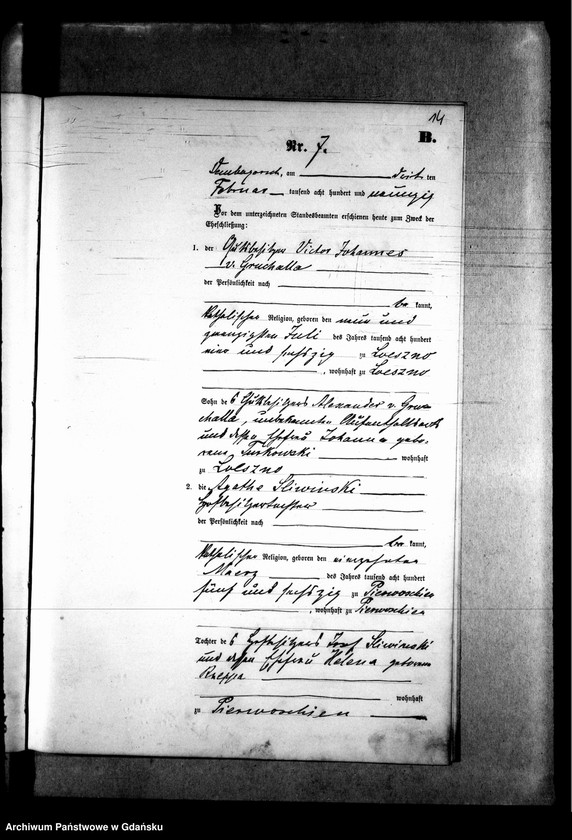 14
B.
Nr. 7.
Dembogorsch, am dritten
Februar tausend acht hundert und neunzig
Vor dem unterzeichneten Standesbeamten erschienen heute zum Zweck der
Eheschließung:
1. der Gutsbesitzer Victor Johannes
v. Gruchalla
der Persönlichkeit nach
be kannt,
katholischer Religion, geboren den neun und
zwanzigsten Juli des Jahres tausend acht hundert
vier und sechszig zu Loeszno
, wohnhaft zu Loeszno
Sohn des Gutsbesitzers Alexander v. Gru-
challa, unbekannten Aufenthaltsorts
und dessen Ehefrau Johanna gebo-
rene Turkowski wohnhaft
zu Loeszno
2. die Agathe Sliwinski
Hofbesitzertochter
der Persönlichkeit nach
be kannt,
katholischer Religion, geboren den
Maerz des Jahres tausend acht hundert
fünf und sechszig zu Pierwoschin
, wohnhaft zu Pierwoschin
Tochter des Hofbesitzers Josef Sliwinski
und dessen Ehefrau Helena geborene
wohnhaft
zu Pierwoschin
Archiwum Państwowe w Gdańsku